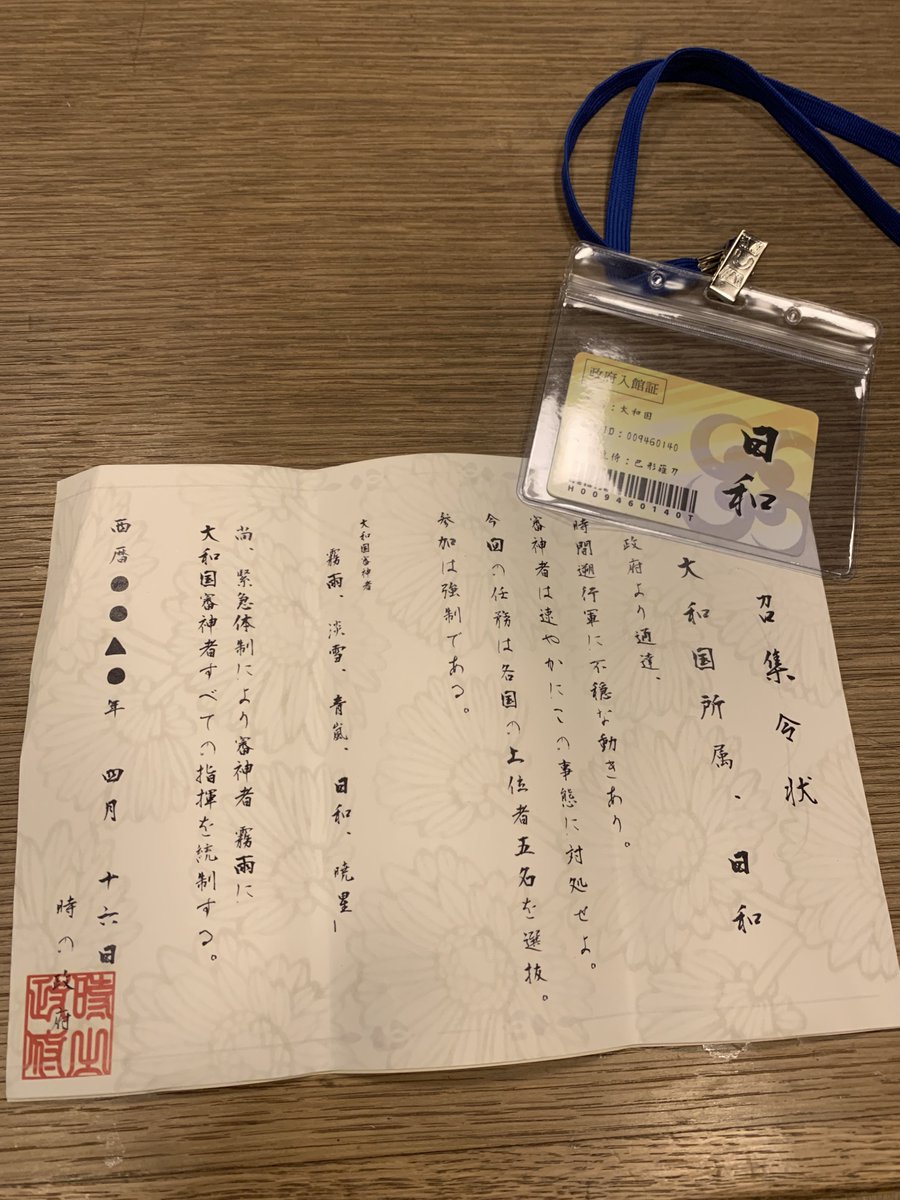 政府入館証
：大和国
ID：009460140
侍：巴形薙刀
H009460140T
日和
召集令状
大和国所属、日和
政府より通達、
時間遡行軍に不穏な動きあり。
審神者は速やかにこの事態に対処せよ。
今回の任務は各国の上位者五名を選抜。
参加は強制である。
大和国審神者
霧雨、淡雪、青嵐、日和、暁星ー
尚、緊急体制により審神者 霧雨に
大和国審神者すべての指揮を統制する。
西暦●●▲●年 四月 十六日
時の政府
時之政府